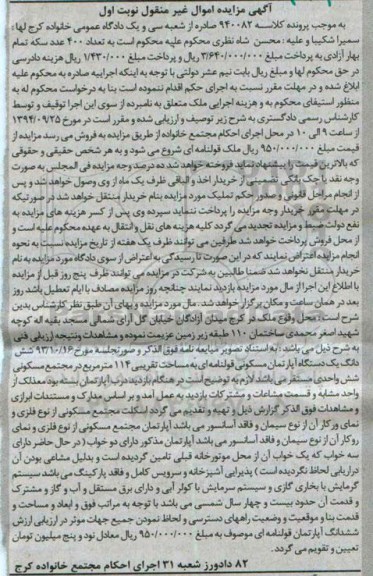 آگهی مزایده اموال غیر منقول نوبت اول
به موجب پرونده کلاسه ۹۴۰۰۸۲ صادره از شعبه سی و یک دادگاه عمومی خانواده کرج لها:
سمیرا شکیبا و علیه: محسن شاه نظری محکوم علیه محکوم است به تعداد ۴۰۰ عدد سکه تمام
بهار آزادی به پرداخت مبلغ ۳/۶۴۰/۰۰۰/۰۰۰ و پرداخت مبلغ ۱/۴۳۰/۰۰۰ ریال هزینه دادرسی
در حق محکوم لها و مبلغ ریال بابت نیم عشر دولتی با توجه به اینکه اجراییه صادره به محکوم علیه
ابلاغ شده و در مهلت مقرر نسبت به اجرای حکم اقدام ننموده است بنا به درخواست محکوم له به
منظور استیفای محکوم به و هزینه اجرایی ملک متعلق به نامبرده از سوی این اجرا توقیف و توسط
کارشناس رسمی دادگستری به شرح زیر توصیف و ارزیابی شده و مقرر است در مورخ ۱۳۹۴/۰۹/۲۵
از ساعت ۹ الی ۱۰ در محل اجرای احکام مجتمع خانواده از طریق مزایده به فروش می رسد مزایده از
قیمت مبلغ ۹۵۰/۰۰۰/۰۰۰ ریال ملک قولنامه ای شروع می شود و به هر شخص حقیقی و حقوقی
که بالاترین قیمت را پیشنهاد نماید فروخته خواهد شد ده درصد وجه مزایده فی المجلس به صورت
وجه نقد یا چک بانکی تضمینی از خریدار اخذ و الباقی ظرف یک ماه از وی وصول خواهد شد و پس
از انجام مراحل قانونی و صدور حکم تملیک مورد مزایده بنام خریدار منتقل خواهد شد در صورتیکه
در مهلت مقرر خریدار وجه مزایده را پرداخت ننماید سپرده وی پس از کسر هزینه های مزایده به
نفع دولت ضبط و مزایده تجدید می گردد کلیه هزینه های نقل و انتقال به عهده محکوم علیه است و
از محل فروش پرداخت خواهد شد طرفین می توانند ظرف یک هفته از تاریخ مزایده نسبت به نحوه
انجام مزایده اعتراض نمایند که در این صورت تا رسیدگی به اعتراض از سوی دادگاه مورد مزایده به نام
خریدار منتقل نخواهد شد ضمنا طالبین به شرکت در مزایده می توانند ظرف پنج روز قبل از مزایده
با اطلاع این اجرا از مال مورد مزایده بازدید نمایند چنانچه روز مزایده مصادف با ایام تعطیل باشد روز
بعد در همان ساعت و مکان برگزار خواهد شد. مال مورد مزایده و بهای آن طبق نظر کارشناس بدین
شرح است: به محل وقوع ملک در کرج میدان آزادگان خیابان گل آرای شمالی مسجد بقیه اله کوچه
شهید اصغر محمدی ساختمان ۱۱۰ طبقه زیر زمین عزیمت نموده و مشاهدات ونتیجه ارزیابی فنی
به شرح ذیل می باشد: به استناد تصویر مبایعه نامه فوق الذکر و صورتجلسه مورخ ۹۳/۱۰/۱۶ شش
دانگ یک دستگاه آپارتمان مسکونی قولنامه ای به مساحت تقریبی ۱۱۴ مترمربع در مجتمع مسکونی
شش واحدی مستقر می باشد لازم به توضیح است در هنگام بازدید درب آپارتمان بسته بود معذلک از
واحد مشابه و قسمت مشاعات و مشترکات بازدید به عمل آمد و بر اساس مدارک و مستندات ابرازی
و مشاهدات فوق الذکر گزارش ذیل و تهیه و تقدیم می گردد اسکلت مجتمع مسکونی از نوع فلزی و
نمای ورکار آن از نوع سیمان و فاقد آسانسور می باشد آپارتمان مجتمع مسکونی از نوع فلزی و نمای
روکار آن از نوع سیمان و فاقد آسانسور می باشد آپارتمان مذکور دارای دو خواب ( در حال حاضر دارای
سه خواب که یک خواب آن از محل موتورخانه قبلی تامین گردیده است و بدلیل مشاعی بودن آن
درارزیابی لحاظ نگردیده است ) پذیرایی آشپزخانه و سرویس کامل و فاقد پارکینگ می باشد سیستم
گرمایش با بخاری گازی و سیستم سرمایش با کولر آبی و دارای برق مستقل و آب و گاز و مشترک
و قدمت آن حدود بیست و چهار سال شمسی می باشد با توجه به مراتب فوق و ابعاد و مساحت و
قدمت بنا و موقعیت و وضعیت راههای دسترسی و لحاظ نمودن جمیع جهات موثر در ارزیابی ارزش
ششدانگ آپارتمان قولنامه ای موصوف به مبلغ ۹۵۰/۰۰۰/۰۰۰ ریال معادل نود و پنج میلیون تومان
تعیین و تقویم می گردد.
۸۲ دادورز شعبه ۳۱ اجرای احکام مجتمع خانواده کرج